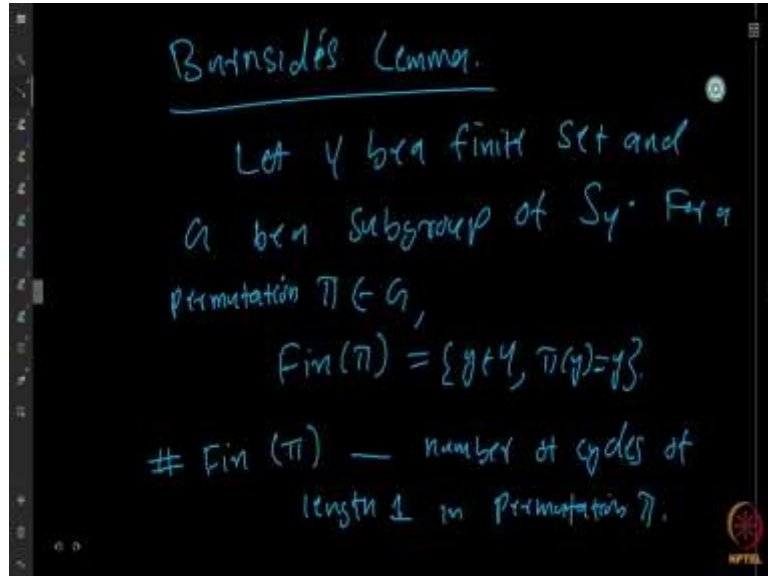 Burnside's Lemma.
Let Y be a finite set and
G be a subgroup of Sy. For a
permutation π ∈ G,
Fin(π) = {y ∈ Y, π(y)=y}.
# Fin (π) — number of cycles of
length 1 in permutation π.
NPTEL